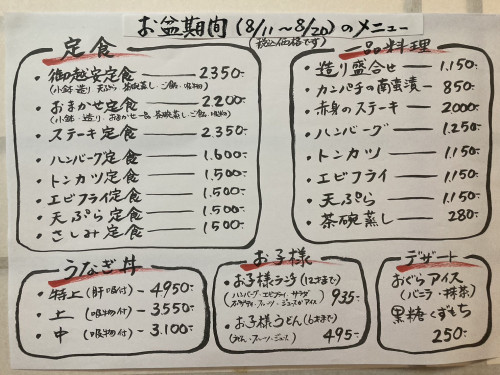 お盆期間(8/11〜8/20)のメニュー
(税込価格です)
定食
・御越安定食 — 2350-
(小鉢 造り 天ぷら 茶碗蒸し ご飯 吸物)
・おまかせ定食 — 2,200-
(小鉢 造り おまかせ一品 茶碗蒸し ご飯 吸物)
・ステーキ定食 — 2,350-
・ハンバーグ定食 — 1,600-
・トンカツ定食 — 1,500-
・エビフライ定食 — 1,500-
・天ぷら定食 — 1,500-
・さしみ定食 — 1,500-
一品料理
・造り盛合せ — 1,150-
・カンパチの南蛮漬 — 850-
・赤身のステーキ — 2000-
・ハンバーグ — 1,250-
・トンカツ — 1,150-
・エビフライ — 1,150-
・天ぷら — 1,150-
・茶碗蒸し — 280-
うなぎ丼
・特上(肝吸付) — 4,950-
・上(吸物付) — 3,550-
・中(吸物付) — 3,100-
お子様
・お子様ランチ(12才まで)
(ハンバーグ・エビフライ・サラダ
スパゲティ・フルーツ・ジュース or アイス) 935-
・お子様うどん(6才まで)
(うどん・フルーツ・ジュース) 495-
デザート
おぐらアイス
(バニラ・抹茶)
黒糖くずもち
250-